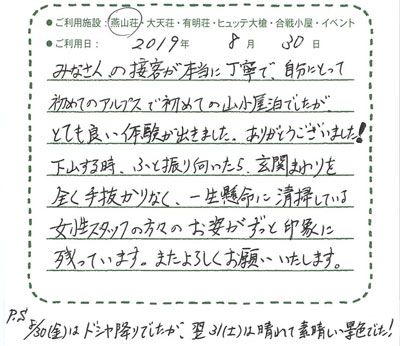 ●ご利用施設:燕山荘・大天荘・有明荘・ヒュッテ大槍・合戦小屋・イベント
●ご利用日: 2019年 8月 30日
みなさんの接客が本当に丁寧で、自分にとって
初めてのアルプスで初めての山小屋泊でしたが、
とても良い体験が出きました。ありがとうございました!
下山する時、ふと振り向いたら、玄関まわりを
全く手抜かりなく、一生懸命に清掃している
女性スタッフの方々のお姿がずっと印象に
残っています。またよろしくお願いいたします。
P.S 8/30(金)はドシャ降りでしたが、翌31(土)は晴れて素晴しい景色でした!